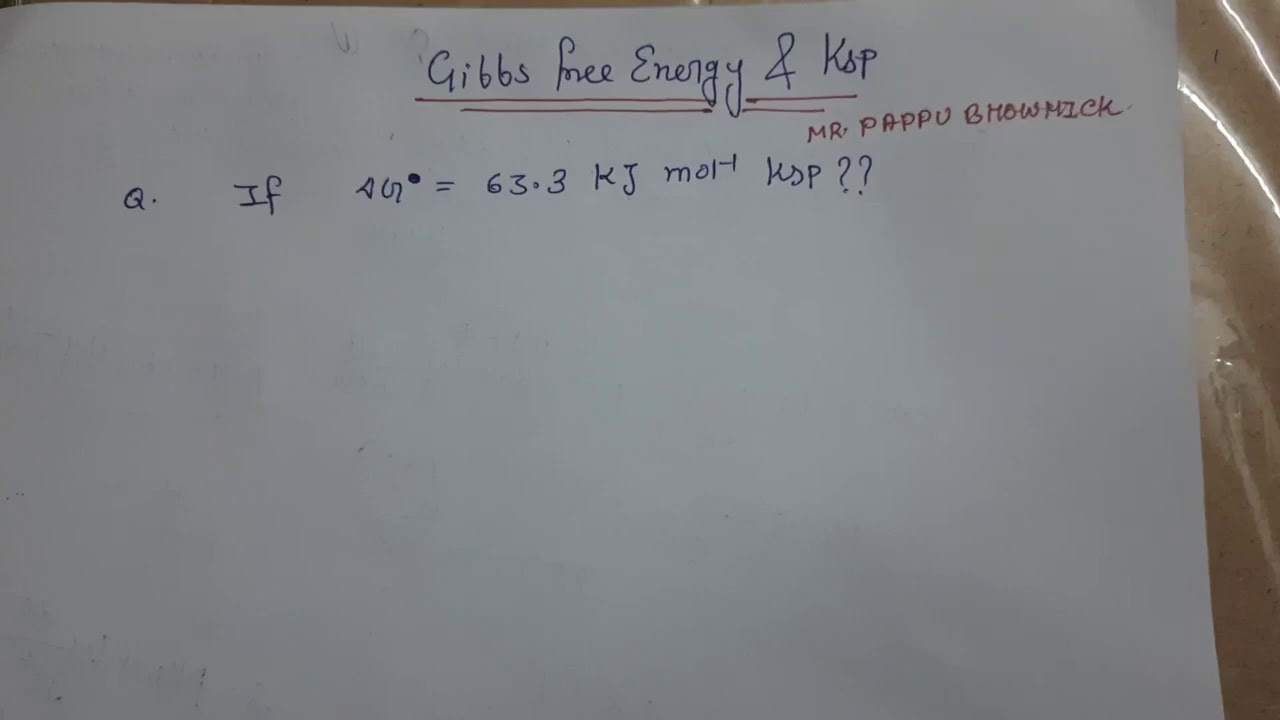 Gibbs free Energy & Ksp
MR. PAPPU BHOWMICK
Q. If ΔG° = 63.3 KJ mol-1 Ksp ??